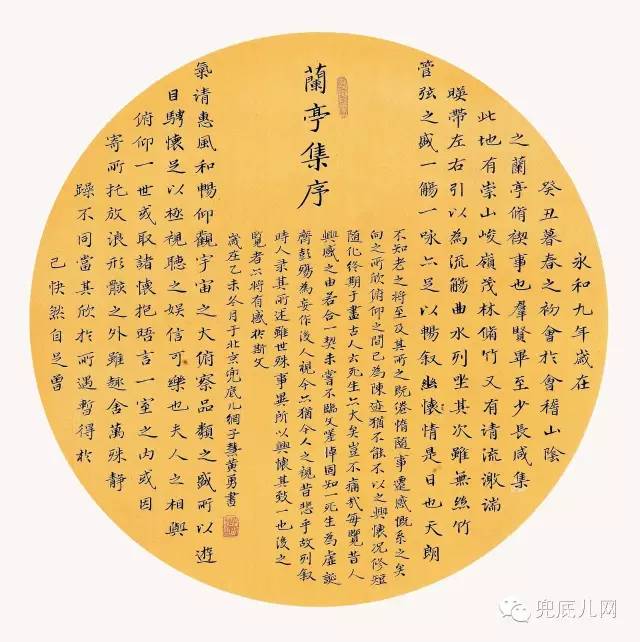 蘭亭集序
永和九年歲在
癸丑暮春之初會於會稽山陰
之蘭亭脩禊事也羣賢畢至少長咸集
此地有崇山峻嶺茂林脩竹又有清流激湍
暎帶左右引以為流觴曲水列坐其次雖無絲竹
管弦之盛一觴一咏亦足以暢叙幽懷情是日也天朗
氣清惠風和暢仰觀宇宙之大俯察品類之盛所以遊
目騁懷足以極視聽之娛信可樂也夫人之相與
俯仰一世或取諸懷抱晤言一室之內或因
寄所托放浪形骸之外雖趣舍萬殊靜
躁不同當其欣於所遇暫得於
己快然自足曾
不知老之將至及其所之既倦情隨事遷感慨系之矣
向之所欣俯仰之間已為陳迹猶不能不以之興懷况修短
隨化終期于盡古人云死生亦大矣豈不痛哉每覽昔人
興感之由若合一契未嘗不臨文嗟悼固知一死生為虛誕
齊彭殤為妄作後人視今亦猶今人之視昔悲乎故列叙
時人录其所述雖世殊事異所以興懷其致一也後之
覽者亦將有感於斯文
歲在乙未冬月于北京兜底儿網子慧黃勇書
兜底儿网